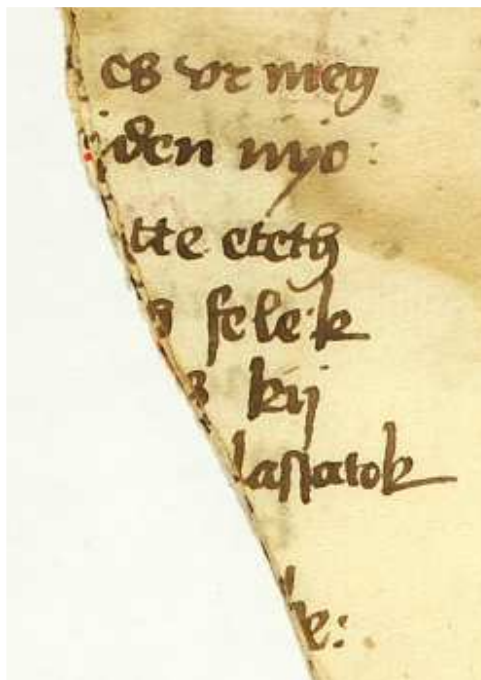 vr meg
den nyo
tte eteth
felek
kij
lassatok